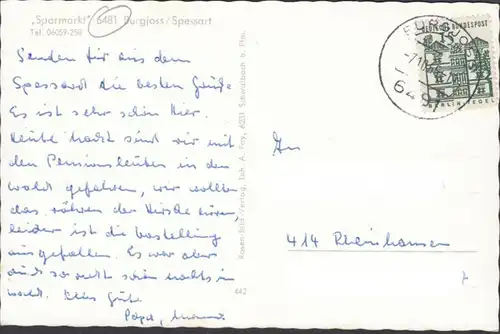 „Sparmarkt" 6481 Burgjoss/Spessart
Tel. 06059-258
Senden Dir aus dem
Spessart die besten Grüße
Es ist sehr schön hier.
Heute Nacht sind wir mit
den Pensionsleuten in den
Wald gefahren, wir wollten
das röhren der Hirsche hören,
leider ist die Bestellung
ausgefallen. Es war aber
auch so recht schön nachts im
Wald. Alles Gute
Papa, Mama
Rosen-Bild-Verlag, Inh. A. Fay, 6231 Schwalbach b. Ffm.
442
An
414 Rheinhausen
DEUTSCHE BUNDESPOST
BERLIN-TEGEL